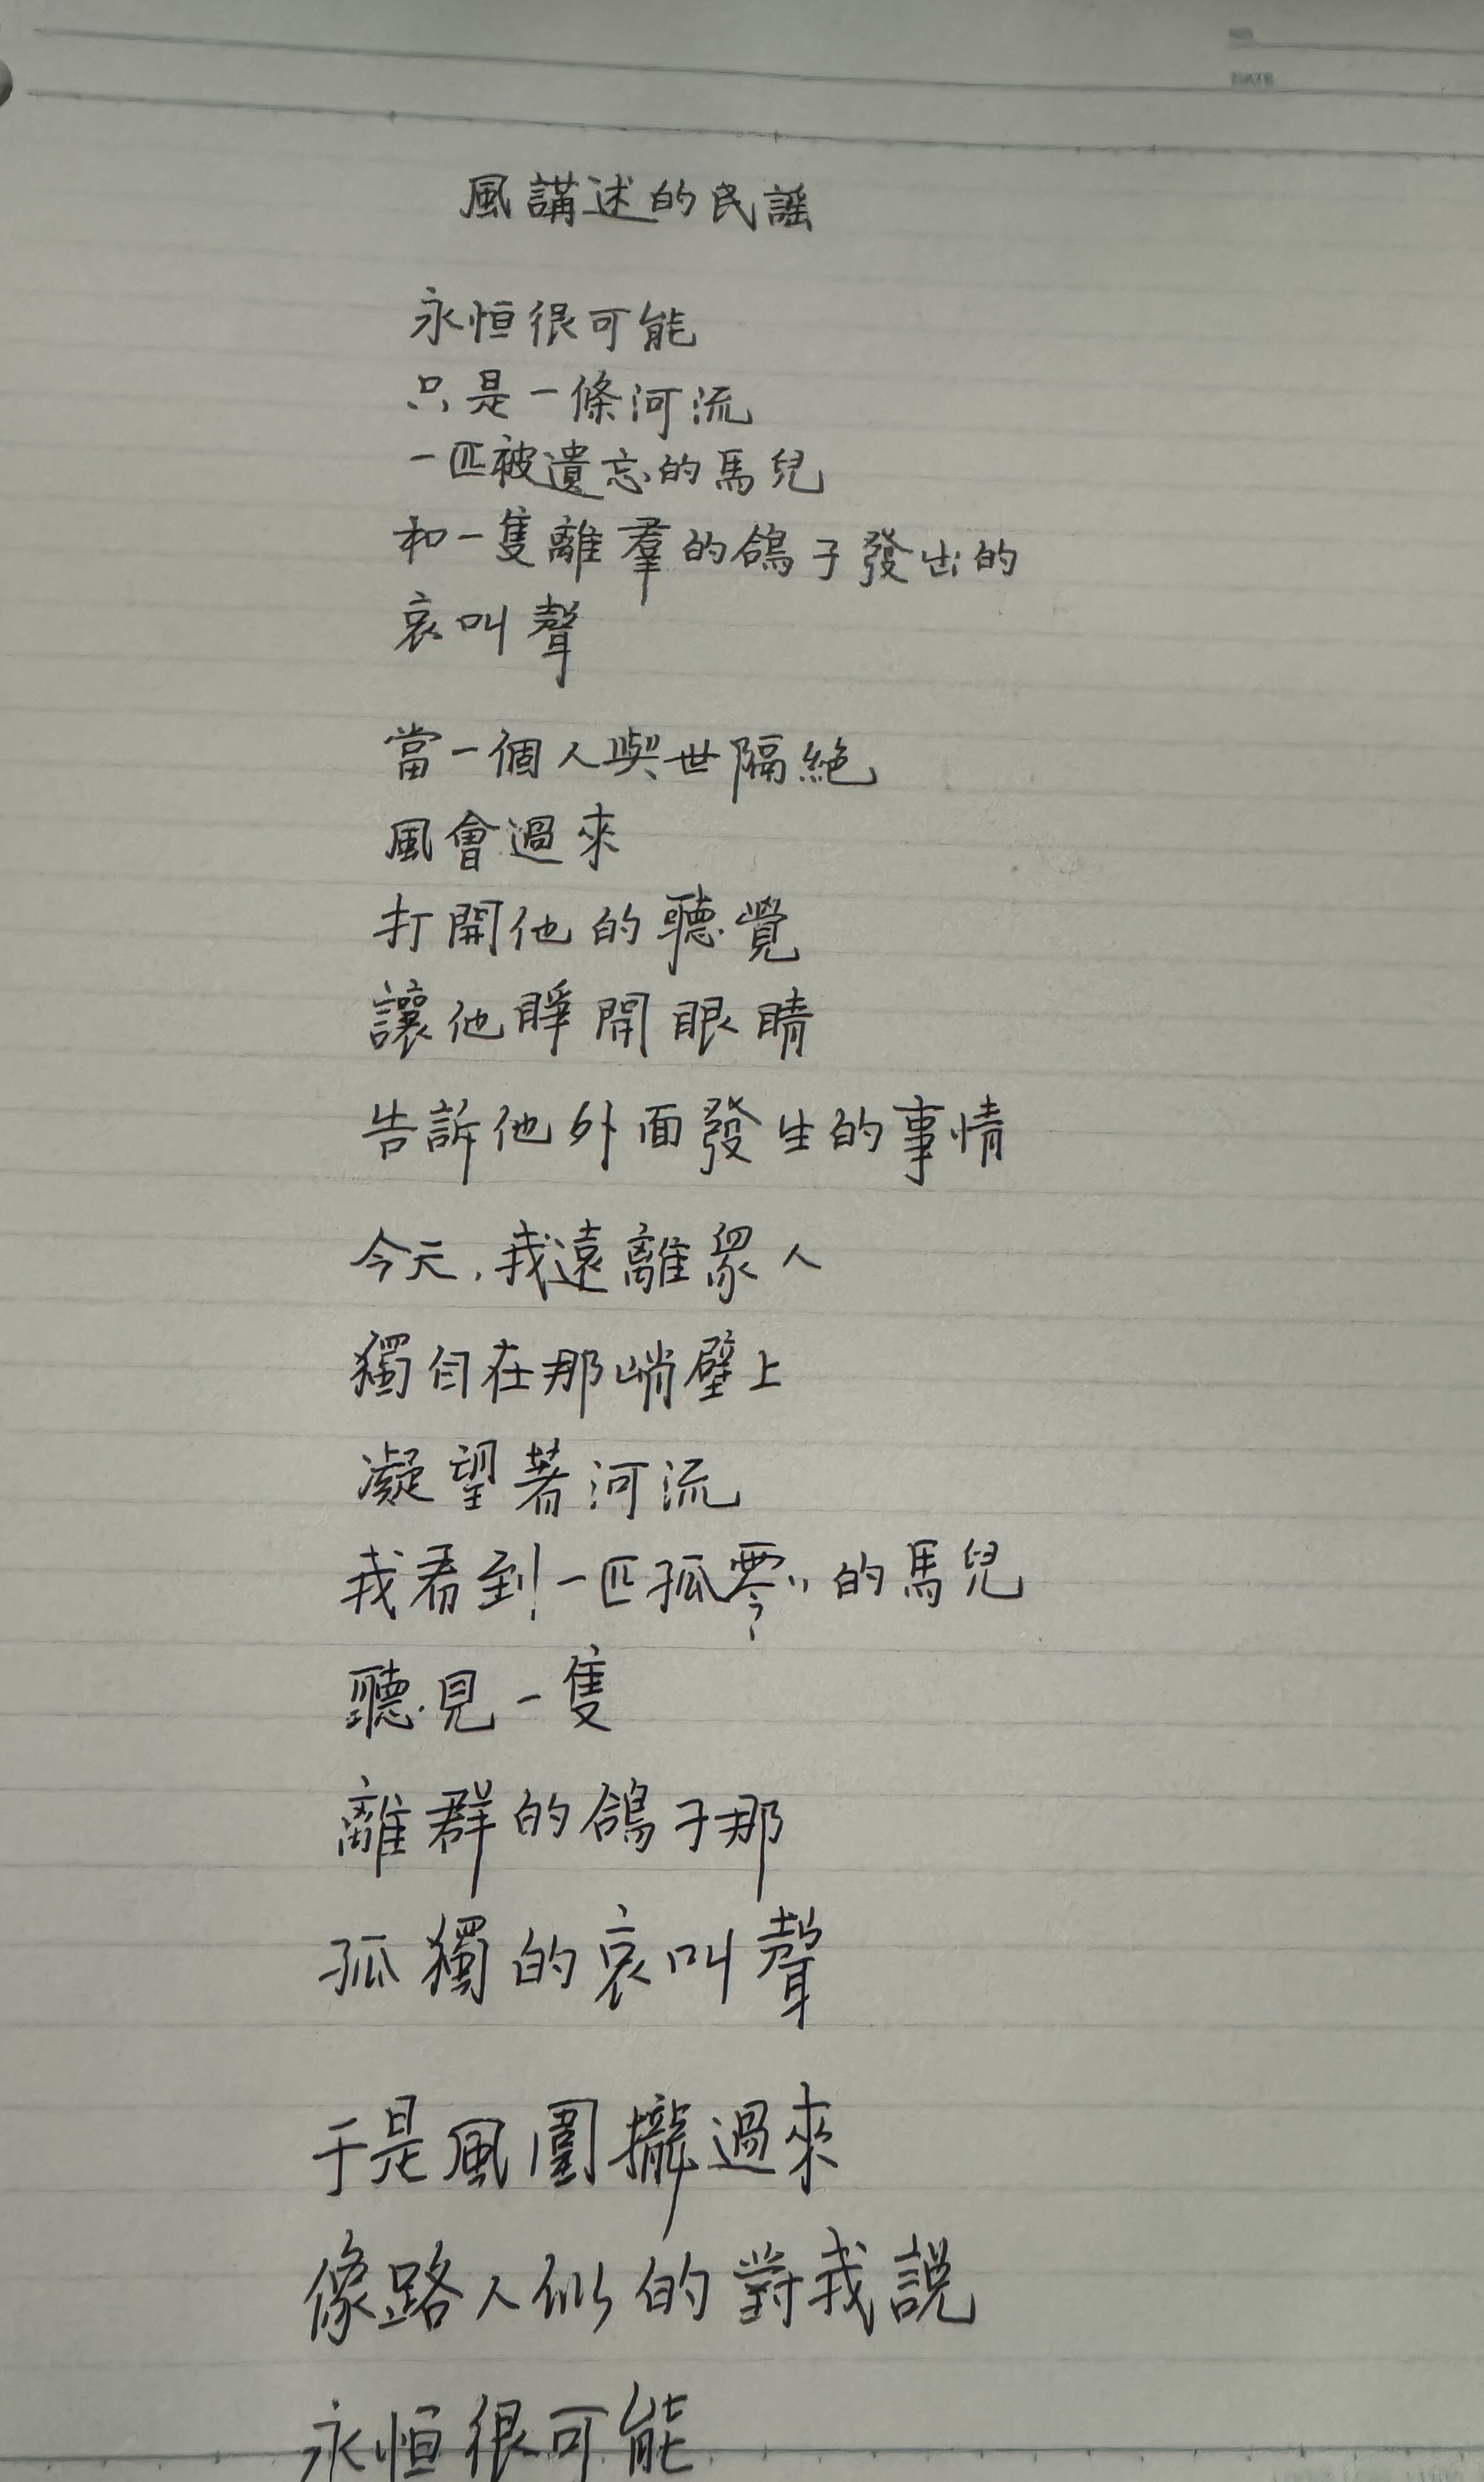 風講述的民謠
永恒很可能
只是一條河流
一匹被遺忘的馬兒
和一隻離羣的鴿子發出的
哀叫聲
當一個人與世隔絶
風會過來
打開他的聽覺
讓他睜開眼睛
告訴他外面發生的事情
今天,我遠離衆人
獨自在那峭壁上
凝望著河流
我看到一匹孤零零的馬兒
聽見一隻
離群的鴿子那
孤獨的哀叫聲
于是風圍攏過來
像路人似的對我説
永恒很可能